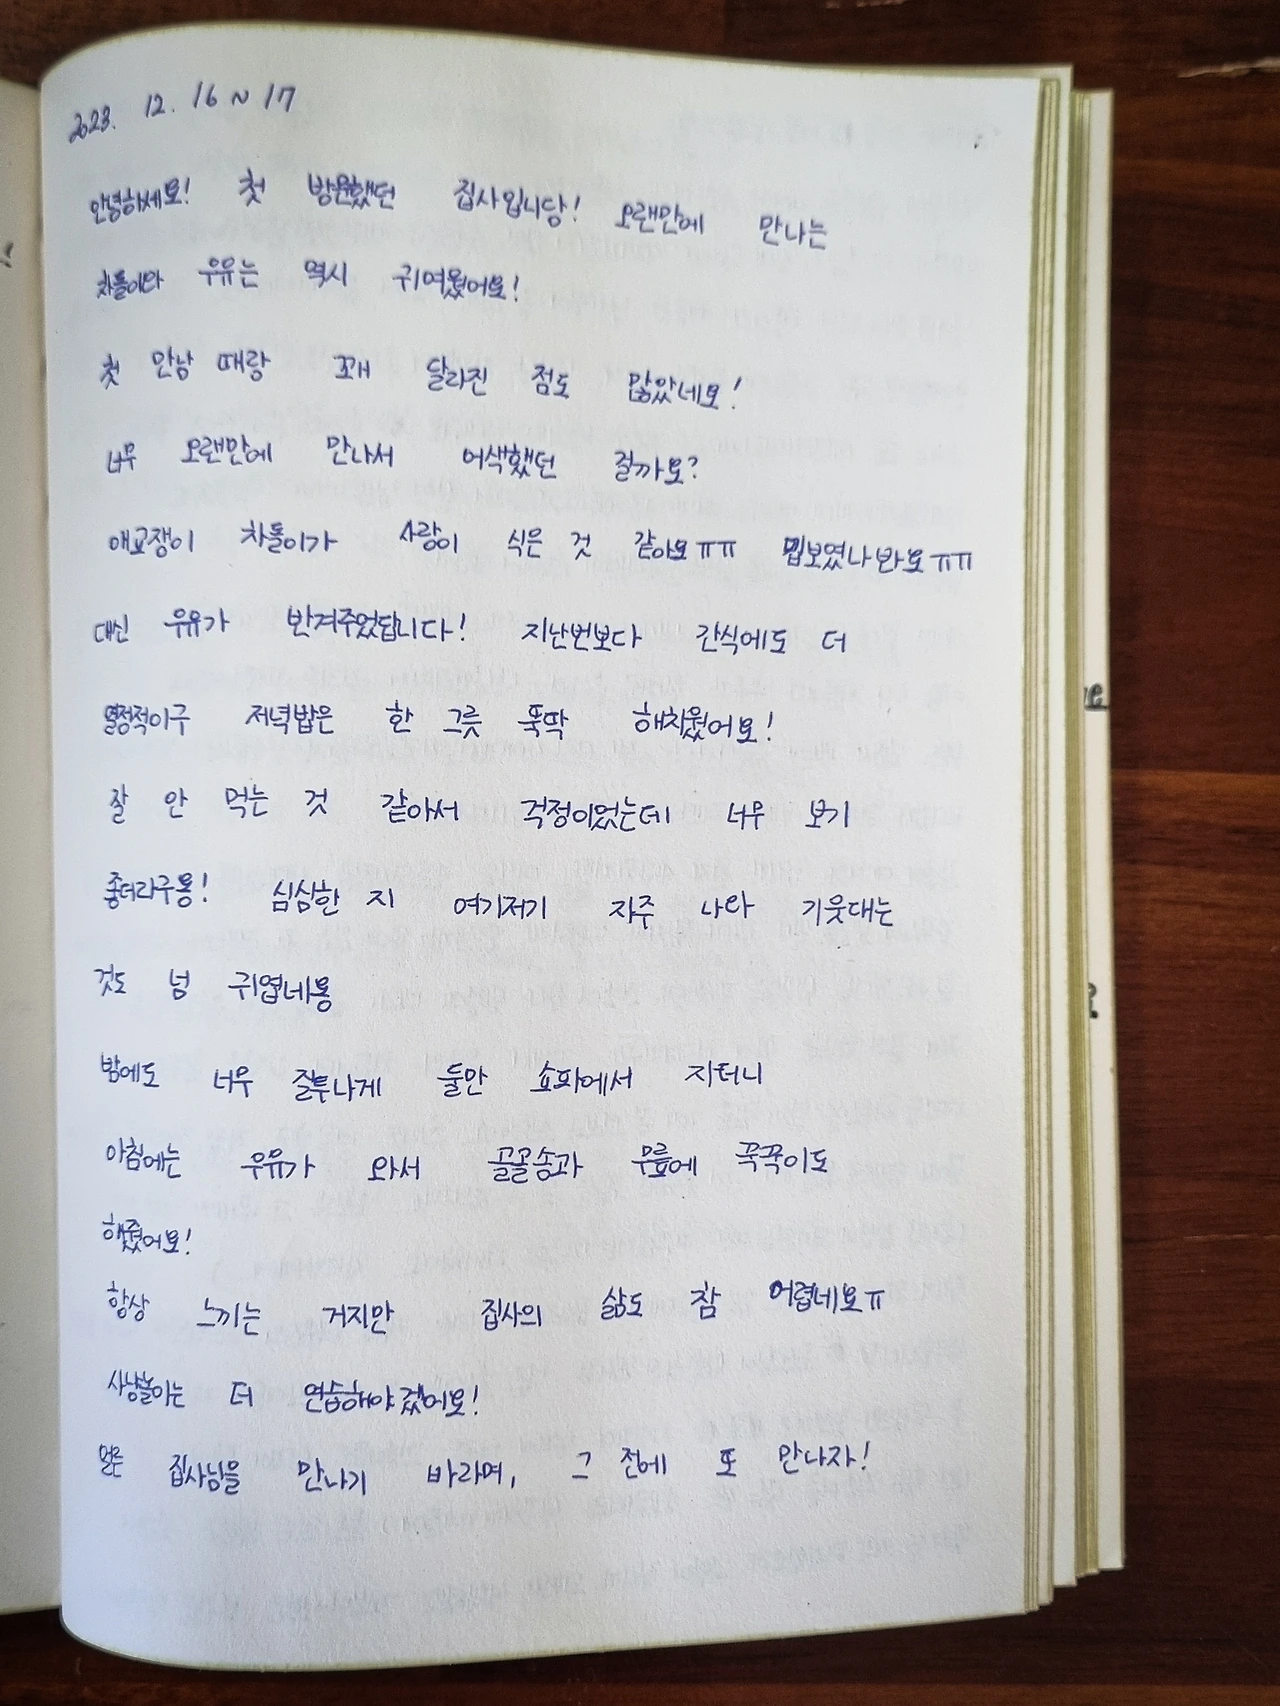 2023. 12. 16 ~ 17
안녕하세요! 첫 방문했던 집사입니당! 오랜만에 만나는
차돌이와 우유는 역시 귀여웠어요!
첫 만남 때랑 꽤 달라진 점도 많았네요!
너무 오랜만에 만나서 어색했던 걸까요?
애교쟁이 차돌이가 사랑이 식은 것 같아요ㅠㅠ 밉보였나봐요ㅠㅠ
대신 우유가 반겨주었답니다! 지난번보다 간식에도 더
열정적이구 저녁밥은 한 그릇 뚝딱 해치웠어요!
잘 안 먹는 것 같아서 걱정이었는데 너무 보기
좋더라구용! 심심한 지 여기저기 자주 나와 기웃대는
것도 넘 귀엽네용
밤에도 너무 질투나게 둘만 쇼파에서 자더니
아침에는 우유가 와서 골골송과 무릎에 꾹꾹이도
해줬어요!
항상 느끼는 거지만 집사의 삶도 참 어렵네요ㅠ
사냥놀이는 더 연습해야겠어요!
얼른 집사님을 만나기 바라며, 그 전에 또 만나자!